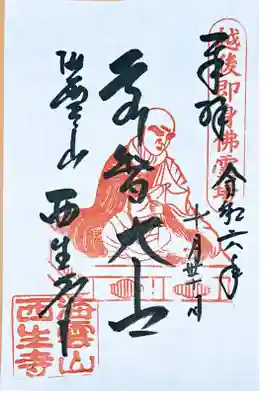 越後即身佛霊場
奉拝
令和六年
十月
弘智大士
海雲山
西生寺
海雲山
西生寺